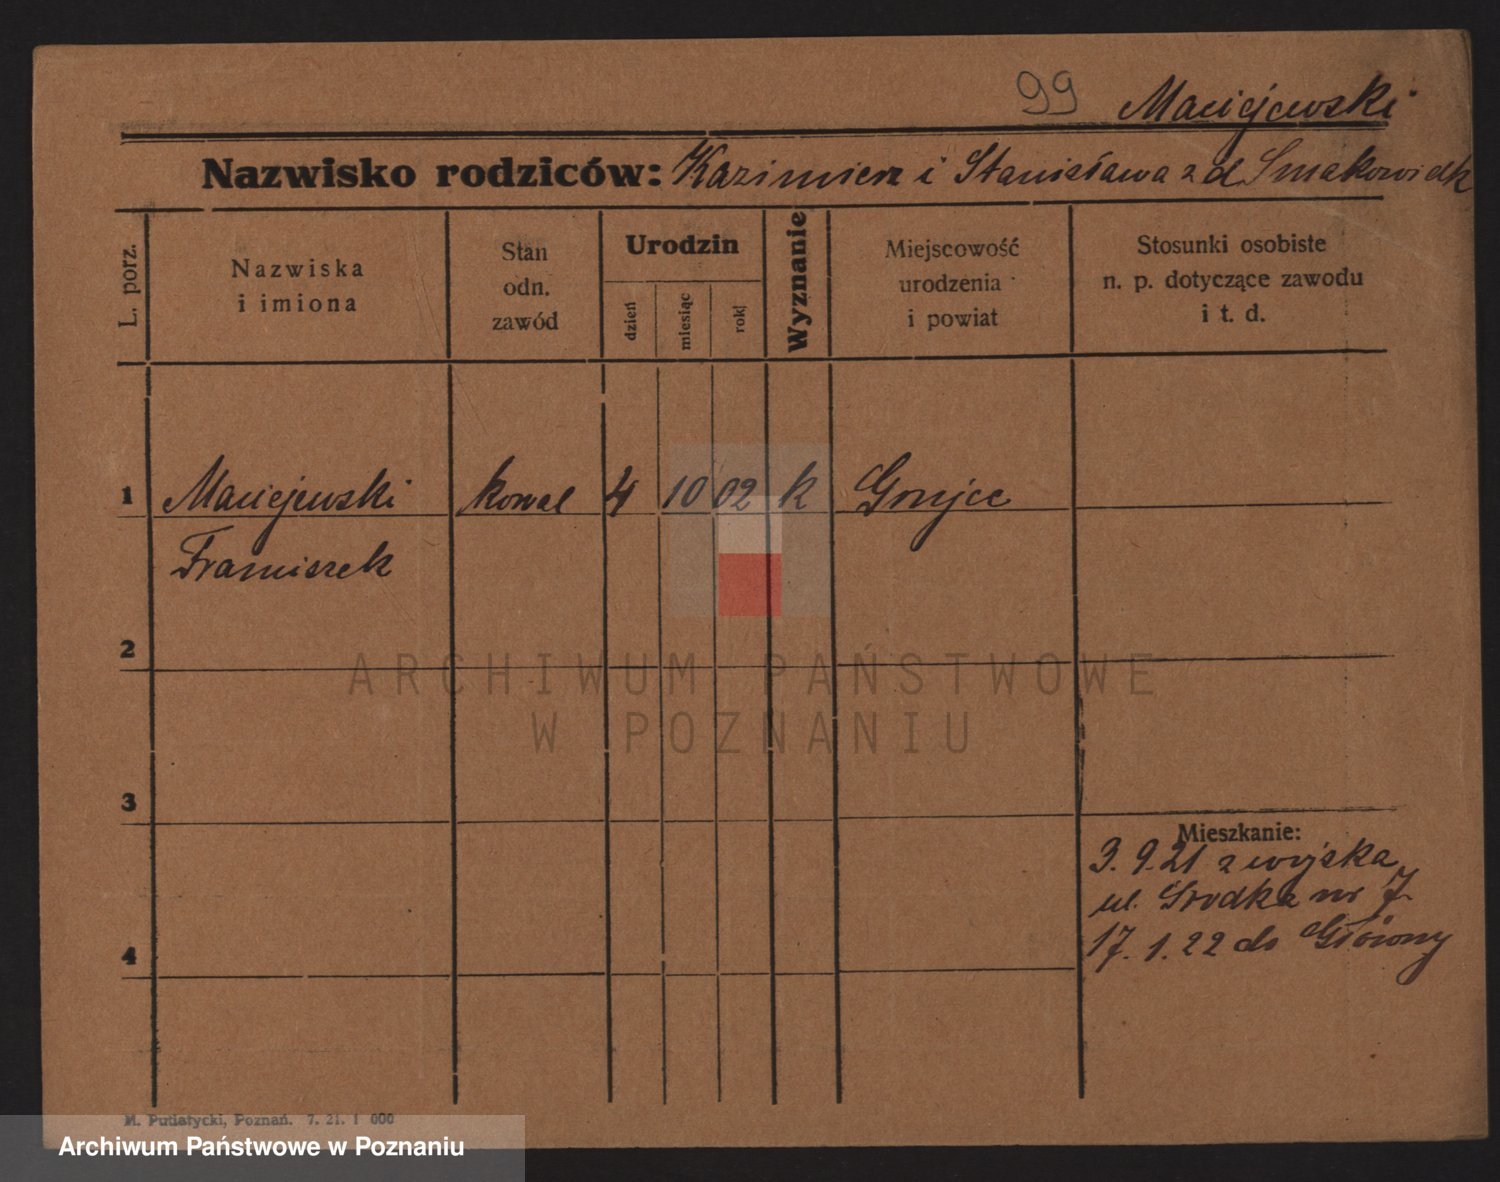 99 Maciejewski
Nazwisko rodziców: Kazimierz i Stanisława z d
L. porz.
Nazwiska
i imiona
Stan
odn.
zawód
Urodzin
dzień
miesiąc
rok
Wyznanie
Miejscowość
urodzenia
i powiat
Stosunki osobiste
n. p. dotyczące zawodu
i t. d.
1 Maciejewski kowal 4 10 02 k
Franciszek
2
3
4
Mieszkanie:
3. 9. 21 z wojska
ul. Środka nr 7
17. 1. 22 do Główny
M. Putiatycki, Poznań. 7. 21. 1 000
ARCHIWUM PAŃSTWOWE
W POZNANIU
Archiwum Państwowe w Poznaniu